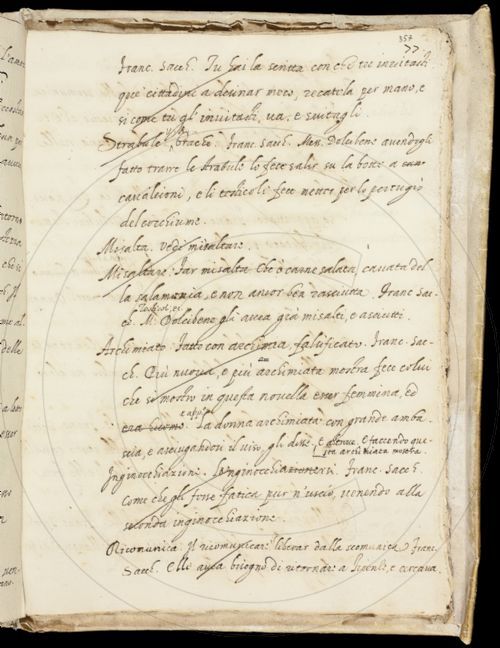 357
77
Franc. Sacch. Tu hai la scritta con che tu inuitasti
que' cittadini a desinar meco, recatela per mano, e
si come tu gl' inuitasti, ua, e suitagli.
Strabule, brache. Franc. Sacch. Mess. Dolcibene auendogli
fatto trarre le strabule lo fece salir su la botte a
carcalcioni, e li testicoli fece mettere per lo pertugio
del cocchiume.
Misalta. Vedi misaltare.
Misaltare. Far misalta che è carne salata, cauata del
la salamoia, e non ancor ben rasciutta. Franc. Sac-
testicoli, ei
ch. M. Dolcibene gli auea già misalti, e asciutti.
Archimiato. Fatto con archimia, falsificato. Franc. Sac-
ch. Più nuoua, e più archimiata mostra fece colui
che si mostrò in questa nouella esser femmina, ed
era uomo. La donna archimiata con grande amba
scia, e asciugandosi il uiso, gli disse. E altroue. E faccendo que
sta archimiata mostra.
Inginocchiazione. Lo inginocchiarsi. Franc. Sacch.
Come che gli fosse fatica pur n'uscio, uenendo alla
seconda inginocchiazione.
Ricomunica. Il ricomunicare, liberar dalla scomunica. Franc.
Sacch. Elli auea bisogno di ritornare a, e cercaua